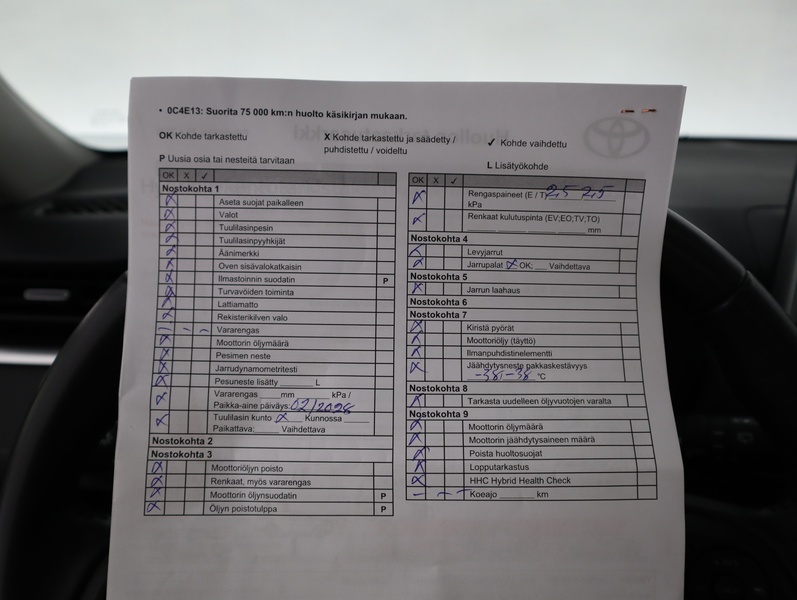 • 0C4E13: Suorita 75 000 km:n huolto käsikirjan mukaan.
OK Kohde tarkastettu
X Kohde tarkastettu ja säädetty /
puhdistettu / voideltu
✓ Kohde vaihdettu
P Uusia osia tai nesteitä tarvitaan
L Lisätyökohde
OK X ✓
Nostokohta 1
X Aseta suojat paikalleen
X Valot
X Tuulilasinpesin
X Tuulilasinpyyhkijät
X Äänimerkki
X Oven sisävalokatkaisin
X Ilmastoinnin suodatin P
X Turvavöiden toiminta
X Lattiamatto
X Rekisterikilven valo
– – – Vararengas
X Moottorin öljymäärä
X Pesimen neste
X Jarrudynamometritesti
X Pesuneste lisätty ______ L
X Vararengas ____mm ______ kPa /
Paikka-aine päiväys: 02/2028
X Tuulilasin kunto X Kunnossa ____
Paikattava:____ Vaihdettava
Nostokohta 2
Nostokohta 3
X Moottoriöljyn poisto
X Renkaat, myös vararengas
X Moottorin öljynsuodatin P
X Öljyn poistotulppa P
OK X ✓
X Rengaspaineet (E / T) 2,5 2,5
kPa
X Renkaat kulutuspinta (EV;EO;TV;TO)
____ ____ ____ ____ mm
Nostokohta 4
X Levyjarrut
X Jarrupalat X OK; __ Vaihdettava
Nostokohta 5
X Jarrun laahaus
Nostokohta 6
Nostokohta 7
X Kiristä pyörät
X Moottoriöljy (täyttö)
X Ilmanpuhdistinelementti
X Jäähdytysneste pakkaskestävyys
-38/-38 °C
Nostokohta 8
X Tarkasta uudelleen öljyvuotojen varalta
Nostokohta 9
X Moottorin öljymäärä
X Moottorin jäähdytysaineen määrä
X Poista huoltosuojat
X Lopputarkastus
X HHC Hybrid Health Check
– – – Koeajo ______ km